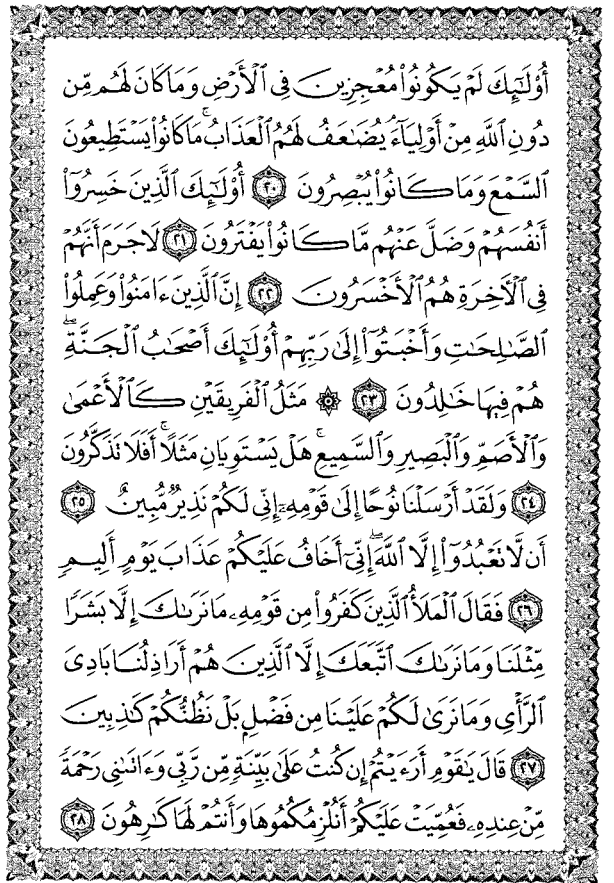 أُوْلَٰٓئِكَ لَمْ يَكُونُواْ مُعْجِزِينَ فِي ٱلْأَرْضِ وَمَا كَانَ لَهُم مِّن
دُونِ ٱللَّهِ مِنْ أَوْلِيَآءَۘ يُضَٰعَفُ لَهُمُ ٱلْعَذَابُۚ مَا كَانُواْ يَسْتَطِيعُونَ
ٱلسَّمْعَ وَمَا كَانُواْ يُبْصِرُونَ ۝٢٠ أُوْلَٰٓئِكَ ٱلَّذِينَ خَسِرُوٓاْ
أَنفُسَهُمْ وَضَلَّ عَنْهُم مَّا كَانُواْ يَفْتَرُونَ ۝٢١ لَا جَرَمَ أَنَّهُمْ
فِي ٱلْأَخِرَةِ هُمُ ٱلْأَخْسَرُونَ ۝٢٢ إِنَّ ٱلَّذِينَ ءَامَنُواْ وَعَمِلُواْ
ٱلصَّٰلِحَٰتِ وَأَخْبَتُوٓاْ إِلَىٰ رَبِّهِمْ أُوْلَٰٓئِكَ أَصْحَٰبُ ٱلْجَنَّةِۖ
هُمْ فِيهَا خَٰلِدُونَ ۝٢٣ ۞ مَثَلُ ٱلْفَرِيقَيْنِ كَٱلْأَعْمَىٰ
وَٱلْأَصَمِّ وَٱلْبَصِيرِ وَٱلسَّمِيعِۚ هَلْ يَسْتَوِيَانِ مَثَلًاۚ أَفَلَا تَذَكَّرُونَ
۝٢٤ وَلَقَدْ أَرْسَلْنَا نُوحًا إِلَىٰ قَوْمِهِۦٓ إِنِّي لَكُمْ نَذِيرٌ مُّبِينٌ ۝٢٥
أَن لَّا تَعْبُدُوٓاْ إِلَّا ٱللَّهَۖ إِنِّيٓ أَخَافُ عَلَيْكُمْ عَذَابَ يَوْمٍ أَلِيمٍ
۝٢٦ فَقَالَ ٱلْمَلَأُ ٱلَّذِينَ كَفَرُواْ مِن قَوْمِهِۦ مَا نَرَىٰكَ إِلَّا بَشَرًا
مِّثْلَنَا وَمَا نَرَىٰكَ ٱتَّبَعَكَ إِلَّا ٱلَّذِينَ هُمْ أَرَاذِلُنَا بَادِيَ
ٱلرَّأْيِ وَمَا نَرَىٰ لَكُمْ عَلَيْنَا مِن فَضْلٍۭ بَلْ نَظُنُّكُمْ كَٰذِبِينَ
۝٢٧ قَالَ يَٰقَوْمِ أَرَءَيْتُمْ إِن كُنتُ عَلَىٰ بَيِّنَةٍ مِّن رَّبِّي وَءَاتَىٰنِي رَحْمَةً
مِّنْ عِندِهِۦ فَعُمِّيَتْ عَلَيْكُمْ أَنُلْزِمُكُمُوهَا وَأَنتُمْ لَهَا كَٰرِهُونَ ۝٢٨